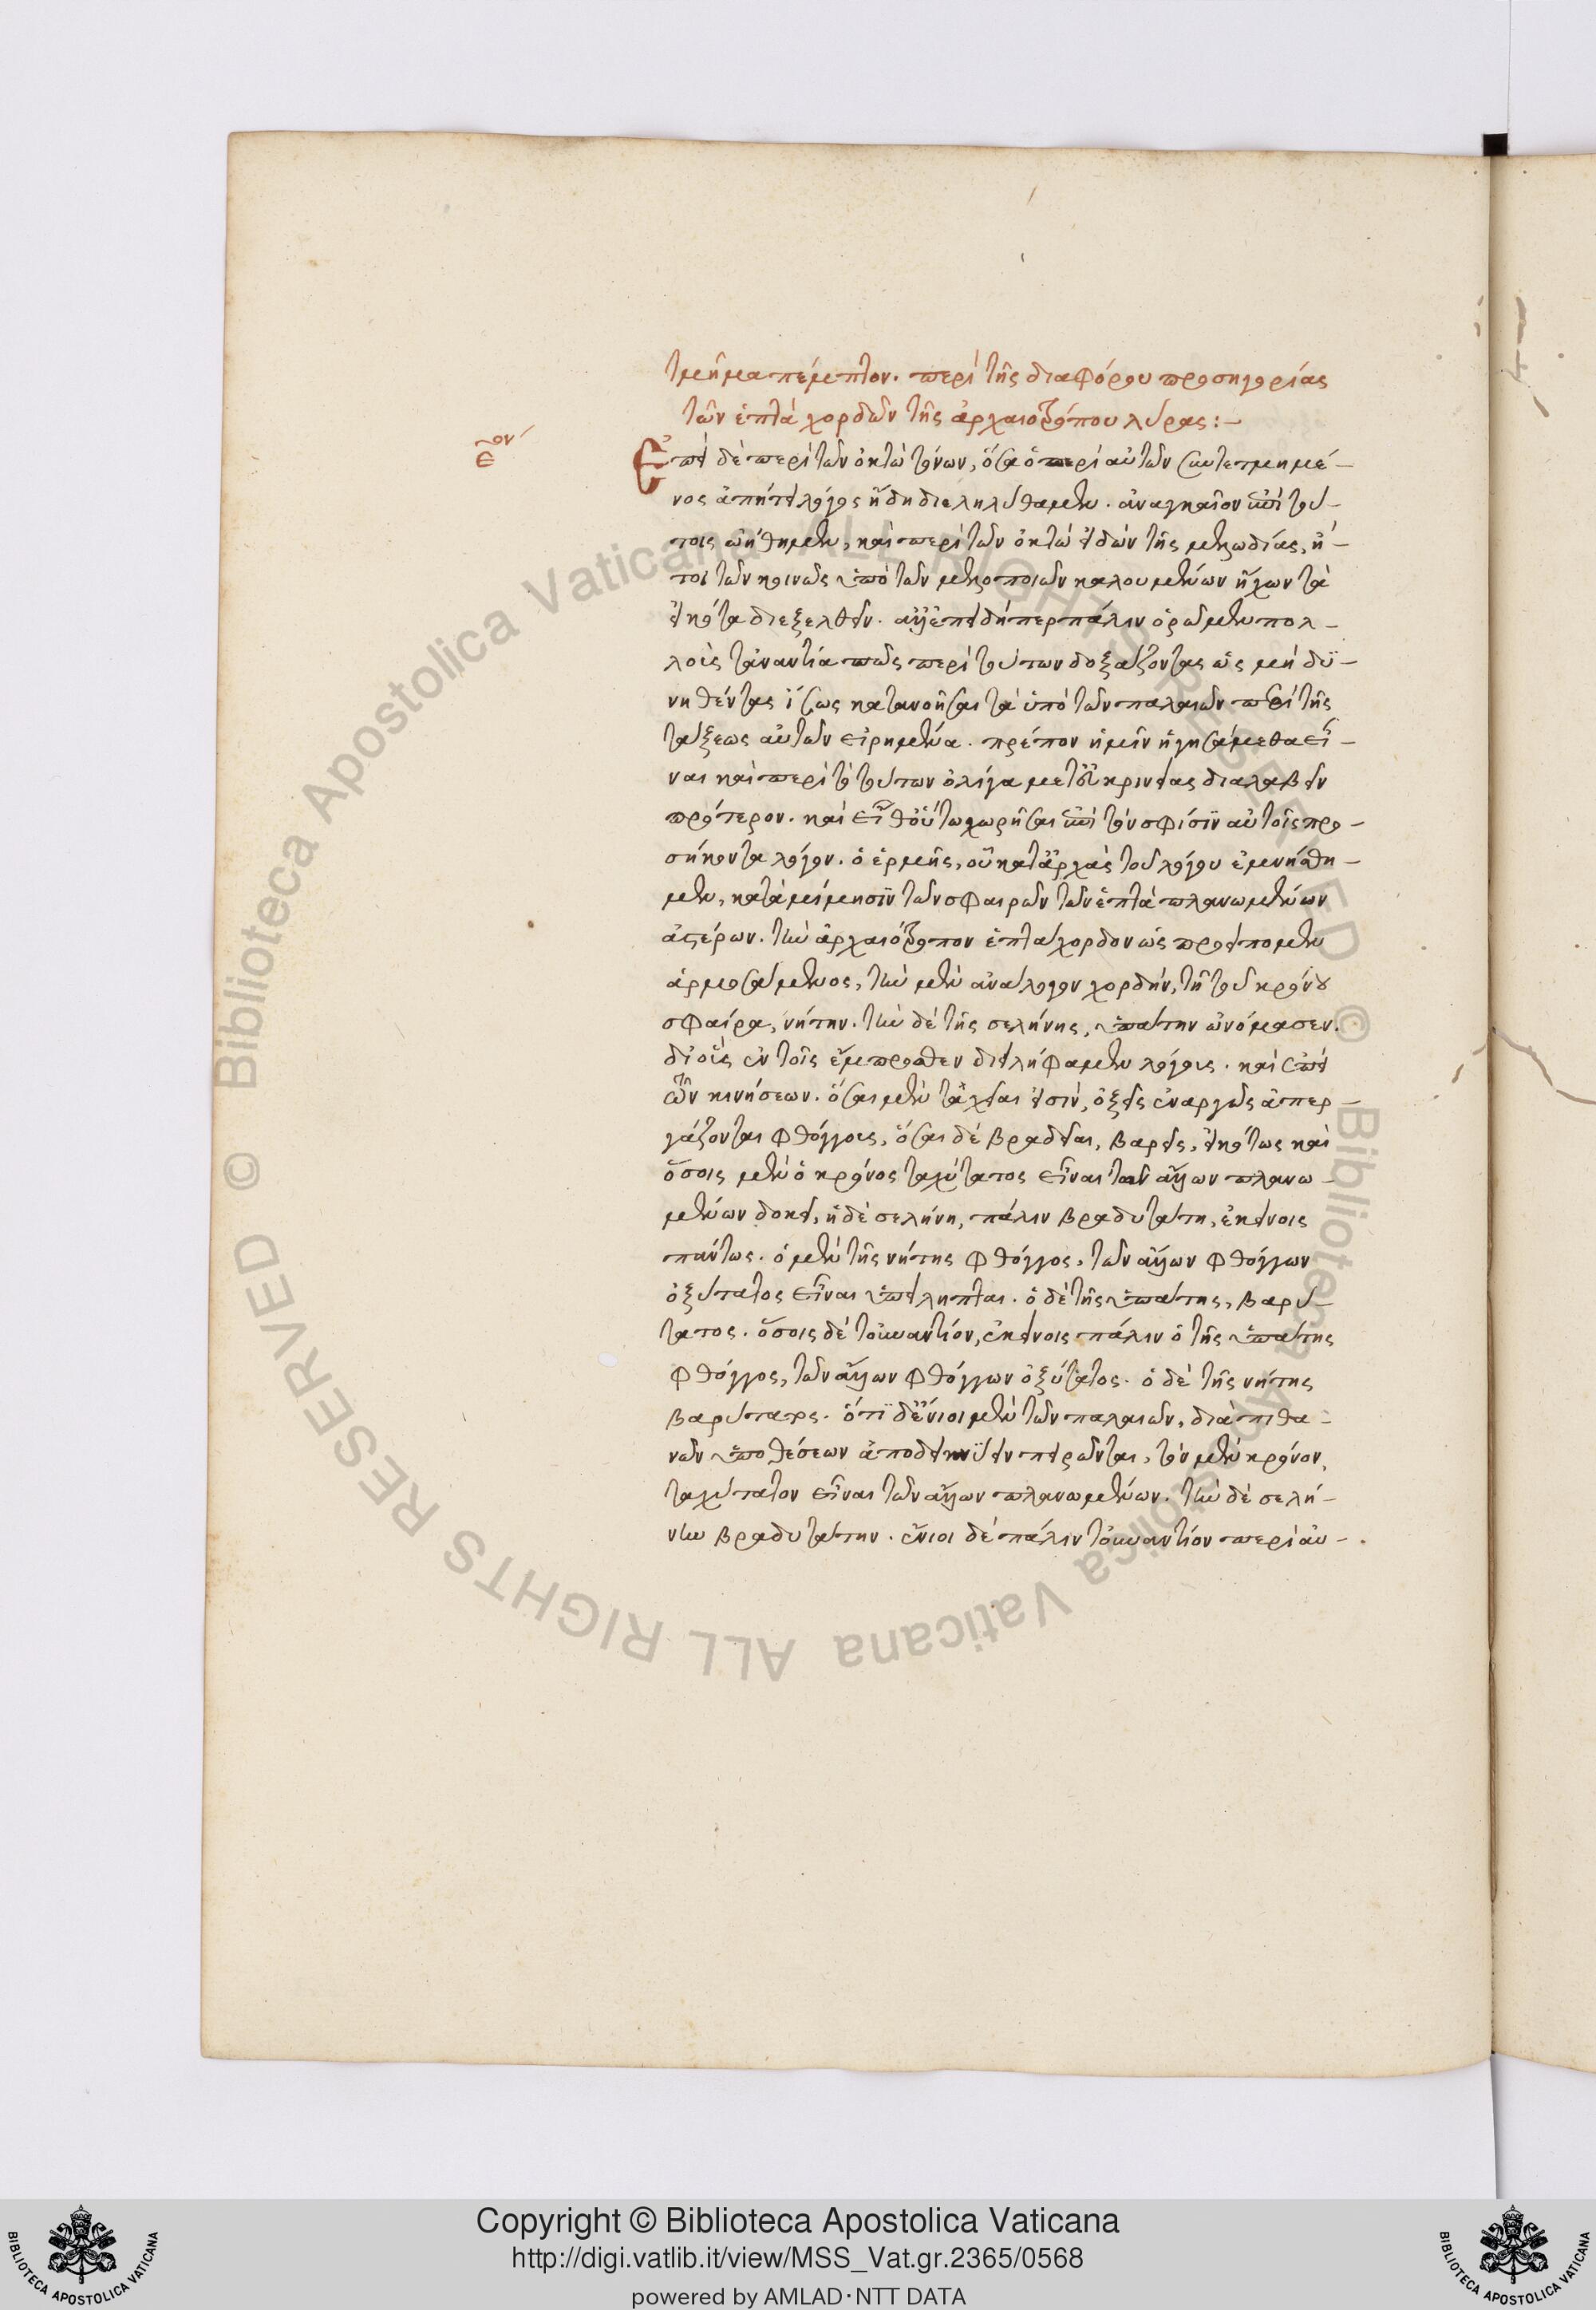 τμῆμα πέμπτον. περὶ τῆς διαφόρου προσηγορίας
τῶν ἑπτὰ χορδῶν τῆς ἀρχαιοτρόπου λύρας :—
ε ον
Ἐπεὶ δὲ περὶ τῶν ὀκτὼ τόνων, ὅσα ὁ περὶ αὐτῶν συντετμημέ-
νος ἀπῄτει λόγος ἤδη διεληλύθαμεν. ἀναγκαῖον ἐπὶ τού-
τοις ᾠήθημεν, καὶ περὶ τῶν ὀκτὼ εἰδῶν τῆς μελῳδίας, ἤ-
τοι τῶν κοινῶς ὑπὸ τῶν μελοποιῶν καλουμένων ἤχων τὰ
εἰκότα διεξελθεῖν. ἀλλ' ἐπειδήπερ πάλιν ὁρῶμεν πολ-
λοὺς τἀναντία πως περὶ τούτων δοξάζοντας ὡς μὴ δυ-
νηθέντας ἴσως κατανοῆσαι τὰ ὑπὸ τῶν παλαιῶν περὶ τῆς
τάξεως αὐτῶν εἰρημένα. πρέπον ἡμῖν ἡγησάμεθα εἶ-
ναι καὶ περὶ τούτων ὀλίγα μετ' εὐκρινείας διαλαβεῖν
πρότερον. καὶ εἶθ' οὕτω χωρῆσαι ἐπὶ τὸν σφίσιν αὐτοῖς προ-
σήκοντα λόγον. ὁ ἑρμῆς, οὗ κατ' ἀρχὰς τοῦ λόγου ἐμνήσθη-
μεν, κατὰ μίμησιν τῶν σφαιρῶν τῶν ἑπτὰ πλανωμένων
ἀστέρων. τὴν ἀρχαιότροπον ἑπτάχορδον ὡς προείπομεν
ἁρμοσάμενος, τὴν μὲν ἀνάλογον χορδήν, τῇ τοῦ κρόνου
σφαίρα, νήτην. τὴν δὲ τῆς σελήνης, ὑπάτην ὠνόμασεν.
δι' οὓς ἐν τοῖς ἔμπροσθεν διειλήφαμεν λόγους. καὶ ἐπεὶ
τῶν κινήσεων. ὅσαι μὲν ταχεῖαι εἰσὶν, ὀξεῖς ἐναργῶς ἀπερ-
γάζονται φθόγγους, ὅσαι δὲ βραδεῖαι, βαρεῖς, εἰκότως καὶ
ὅσοις μὲν ὁ κρόνος ταχύτατος εἶναι τῶν ἄλλων πλανω-
μένων δοκεῖ, ἡ δὲ σελήνη, πάλιν βραδυτάτη, ἐκείνοις
πάντως. ὁ μὲν τῆς νήτης φθόγγος, τῶν ἄλλων φθόγγων
ὀξύτατος εἶναι ὑπείληπται. ὁ δὲ τῆς ὑπάτης, βαρύ-
τατος. ὅσοις δὲ τοὐναντίον, ἐκείνοις πάλιν ὁ τῆς ὑπάτης
φθόγγος, τῶν ἄλλων φθόγγων ὀξύτατος. ὁ δὲ τῆς νήτης
βαρύτατος. ὅτι δ' ἔνιοι μὲν τῶν παλαιῶν, διὰ πιθα-
νῶν ὑποθέσεων ἀποδεικνύειν πειρῶνται, τὸν μὲν κρόνον,
ταχύτατον εἶναι τῶν ἄλλων πλανωμένων. τὴν δὲ σελή-
νην βραδυτάτην. ἔνιοι δὲ πάλιν τοὐναντίον περὶ αὐ-
Copyright © Biblioteca Apostolica Vaticana
http://digi.vatlib.it/view/MSS_Vat.gr.2365/0568
powered by AMLAD·NTT DATA
BIBLIOTECA APOSTOLICA VATICANA
BIBLIOTECA APOSTOLICA VATICANA
© Biblioteca Apostolica Vaticana ALL RIGHTS RESERVED
© Biblioteca Apostolica Vaticana ALL RIGHTS RESERVED